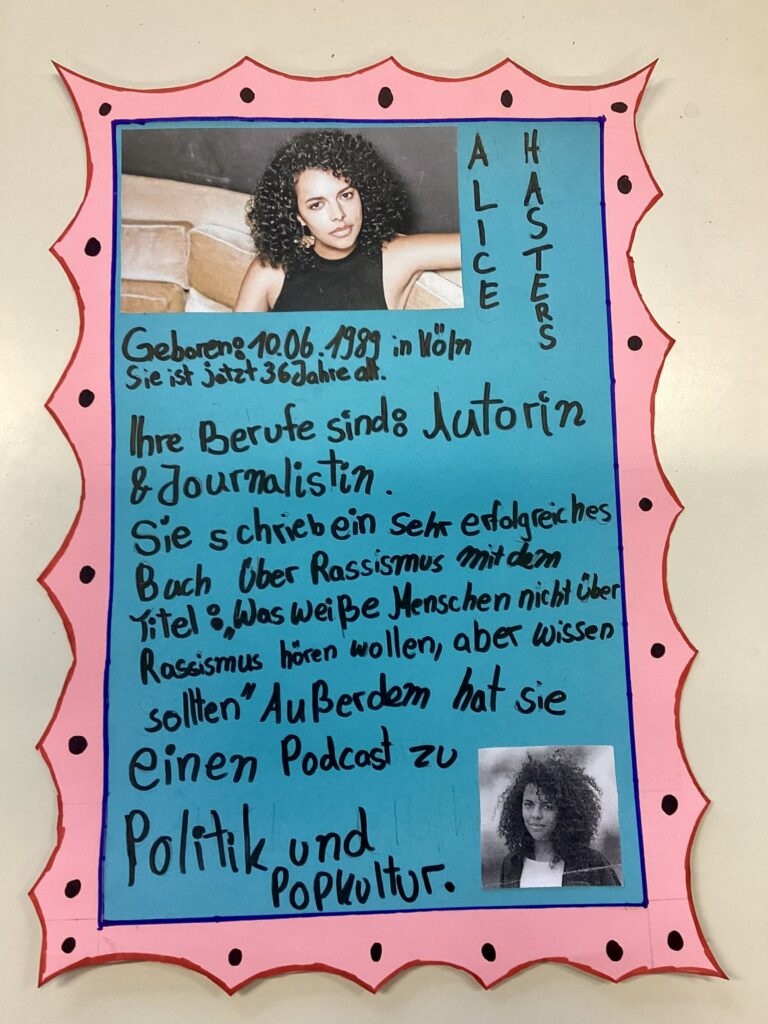 ALICE
HASTERS
Geboren: 10.06.1989 in Köln
Sie ist jetzt 36 Jahre alt.
Ihre Berufe sind: Autorin
& Journalistin.
Sie schrieb ein sehr erfolgreiches
Buch über Rassismus mit dem
Titel: „Was weiße Menschen nicht über
Rassismus hören wollen, aber wissen
sollten" Außerdem hat sie
einen Podcast zu
Politik und
Popkultur.